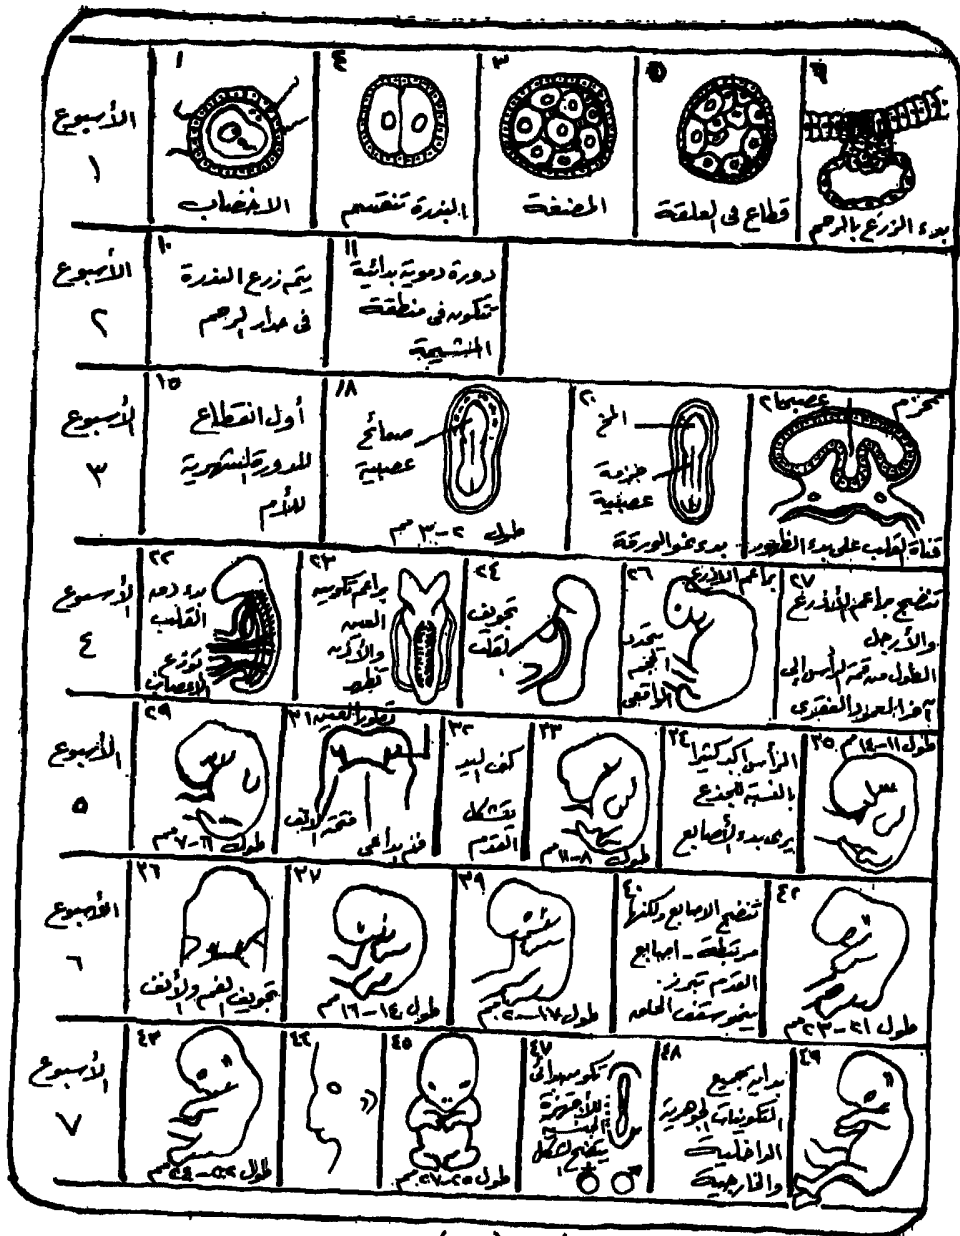 الأسبوع
١
١
الاخصاب
٤
البذرة تنقسم
٣
المضغة
قطاع في العلقة
بدء الزرع بالرحم
الأسبوع
٢
١٠
يتم زرع البذرة
في جدار الرحم
١١
دورة دموية بدائية
تتكون في منطقة
المشيمة
الأسبوع
٣
١٥
أول انقطاع
للدورة الشهرية
للأم
١٨
صفائح
عصبية
طول ٢-٣ مم
٢٠
المخ
حزمة
عصبية
بدء نمو الورقة
قناة القلب على بدء الظهور
الأسبوع
٤
٢٢
بدء دم
القلب
توزع
الاعصاب
٢٣
براعم تكوين
العين
والأذن
تظهر
٢٤
تجويف
القلب
٢٦
براعم الاذرع
يتحدد
الجذع
٢٧
تنضج براعم الأذرع
والأرجل
الطول من قمة الرأس إلى
آخر العمود الفقري
الأسبوع
٥
٢٩
طول ٦-٧ مم
٣١
تطور العين
فتحة الأنف
فم بدائي
٣٢
كف اليد
يتشكل
القدم
٣٣
طول ٨-١١ مم
٣٤
الرأس أكبر كثيرا
بالنسبة للجذع
يرى بدء الأصابع
٣٥
طول ١١-١٤ مم
الأسبوع
٦
٣٦
تجويف الفم والأنف
٣٧
طول ١٤-١٦ مم
٣٩
طول ١٧-٢٠ مم
٤٠
تنضج الاصابع ولكنها
مرتبطة - اصابع
القدم تبرز.
ينمو سقف الحلق
٤٢
طول ٢١-٢٣ مم
الأسبوع
٧
٤٣
٤٤
٤٥
طول ٢٥-٢٧ مم
٤٧
٤٨
بداية جميع
التكوينات الجوهرية
الداخلية
والخارجية
٤٩